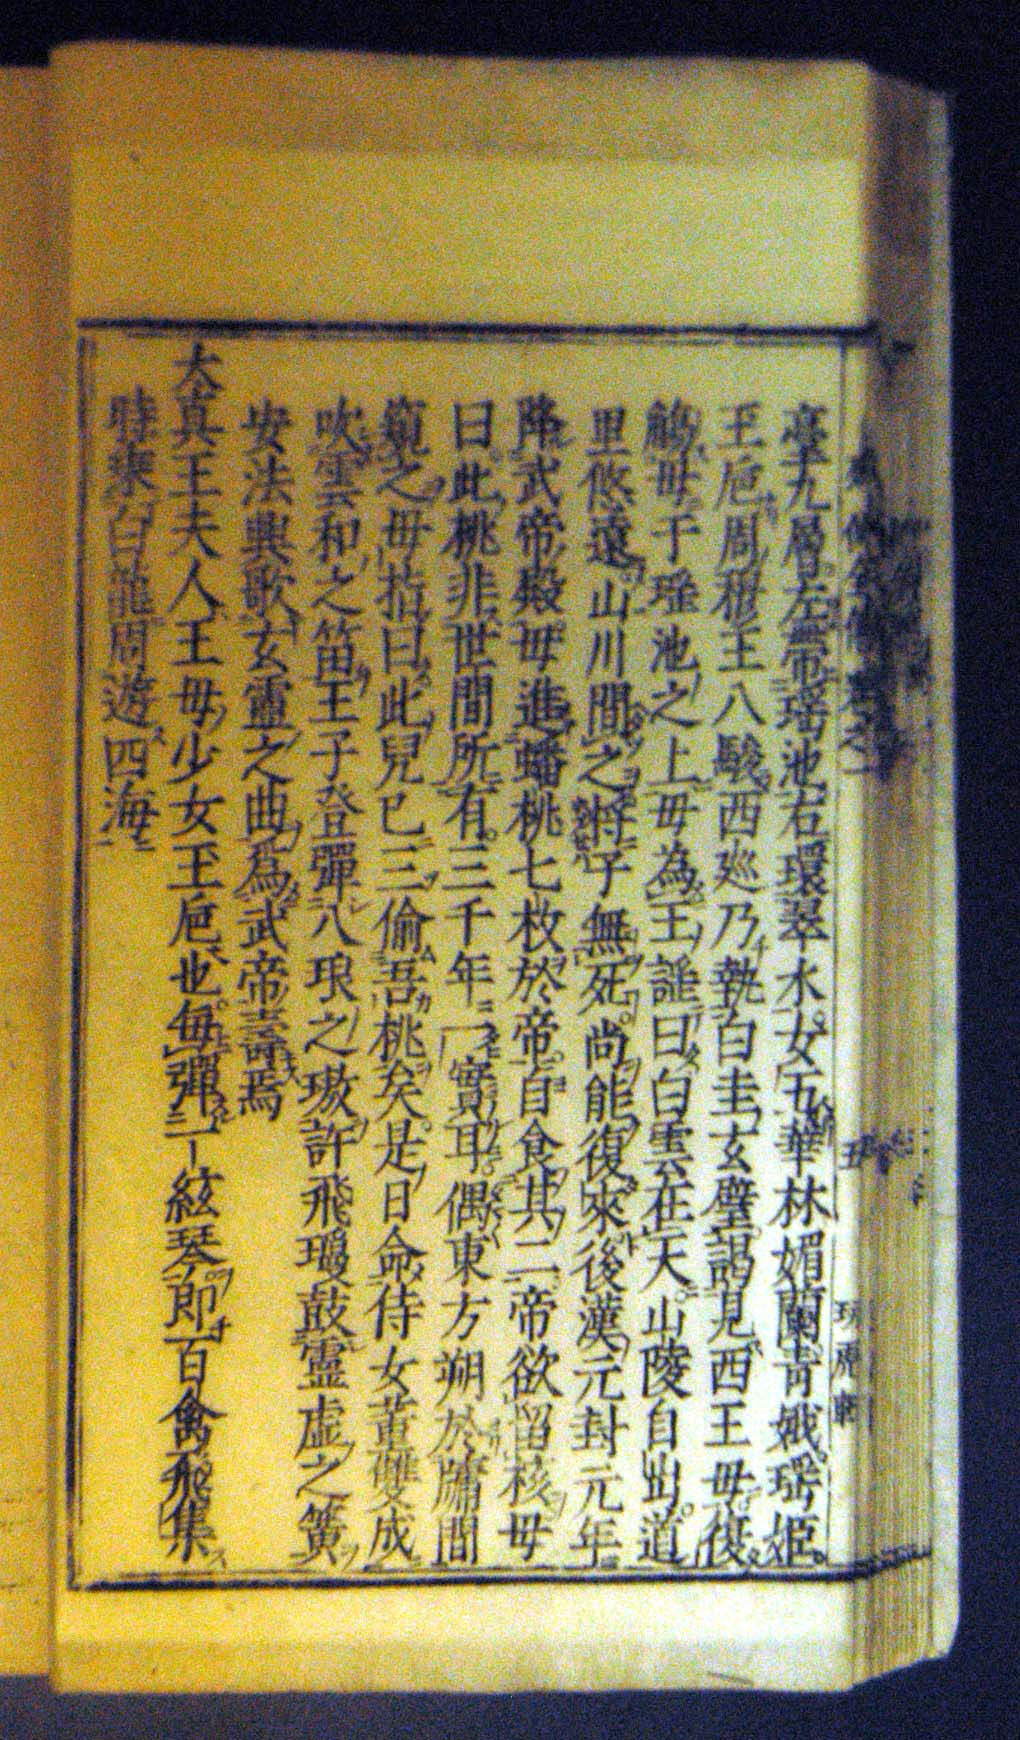 臺九層左帶瑤池右環翠水女五華林媚蘭青娥瑤姬
王巵周穆王八駿西巡乃執白圭玄璧謁見西王母復
觴母于瑤池之上母為王謠曰白雲在天山陵自出道
里悠遠山川間之將子無死尚能復來後漢元封元年
降武帝殿母進蟠桃七枚於帝自食其二帝欲留核母
曰此桃非世間所有三千年一實耳偶東方朔於牖間
窺之母指曰此兒已三偷吾桃矣是日命侍女董雙成
吹雲和之笛王子登彈八琅之璈許飛瓊鼓靈虛之簧
安法興歌玄靈之曲為武帝壽焉
太真王夫人王母少女玉巵也每彈一絃琴即百禽飛集
時乘白龍周遊四海